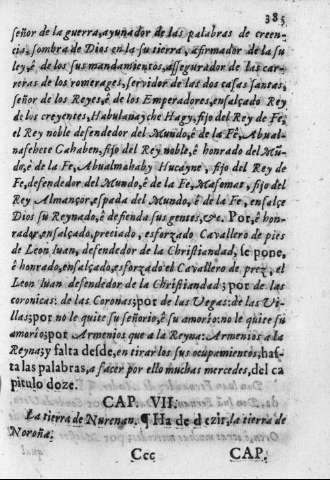 385
señor de la guerra, ayunador de las palabras de creen-
cia, sombra de Dios en la su tierra, afirmador de la su
ley, è de los sus mandamientos, assegurador de las car-
reras de los romerages, servidor de las dos casas santas,
señor de los Reyes, è de los Emperadores, ensalçado Rey
de los creyentes, Habulanayche Hagy, fijo del Rey de Fe,
el Rey noble defendedor del Mundo, è de la Fè, Abual-
nasehete Gahaben, fijo del Rey noble, è honrado del Mũ-
do, è de la Fe, Abualmahaby Hucayne, fijo del Rey de
Fe, defendedor del Mundo, è de la Fe, Masomas, fijo del
Rey Almançor, espada del Mundo, è de la Fe, ensalçe
Dios su Reynado, è defienda sus gentes, &c. Por, è hon-
rador, ensalçado, preciado, esforzado Cavallero de pies
de Leon Iuan, defendedor de la Christiandad, se pone,
è honrado, ensalçado, esforzado el Cavallero de prez, el
Leon Iuan defendedor de la Christiandad; por de las
coronicas: de las Coronas; por de las Vegas: de las Vi-
llas; por no le quite su señorio, è su amorio: no le quite su
amorio; por Armenios que a la Reyna: Armenios a la
Reyna; y falta desde, en tirar los sus ocupamientos, has-
ta las palabras, a facer por ello muchas mercedes, del ca
pitulo doze.
CAP. VII.
La tierra de Nurenan. ¶ Ha de dezir, la tierra de
Noroña.
Ccc CAP.